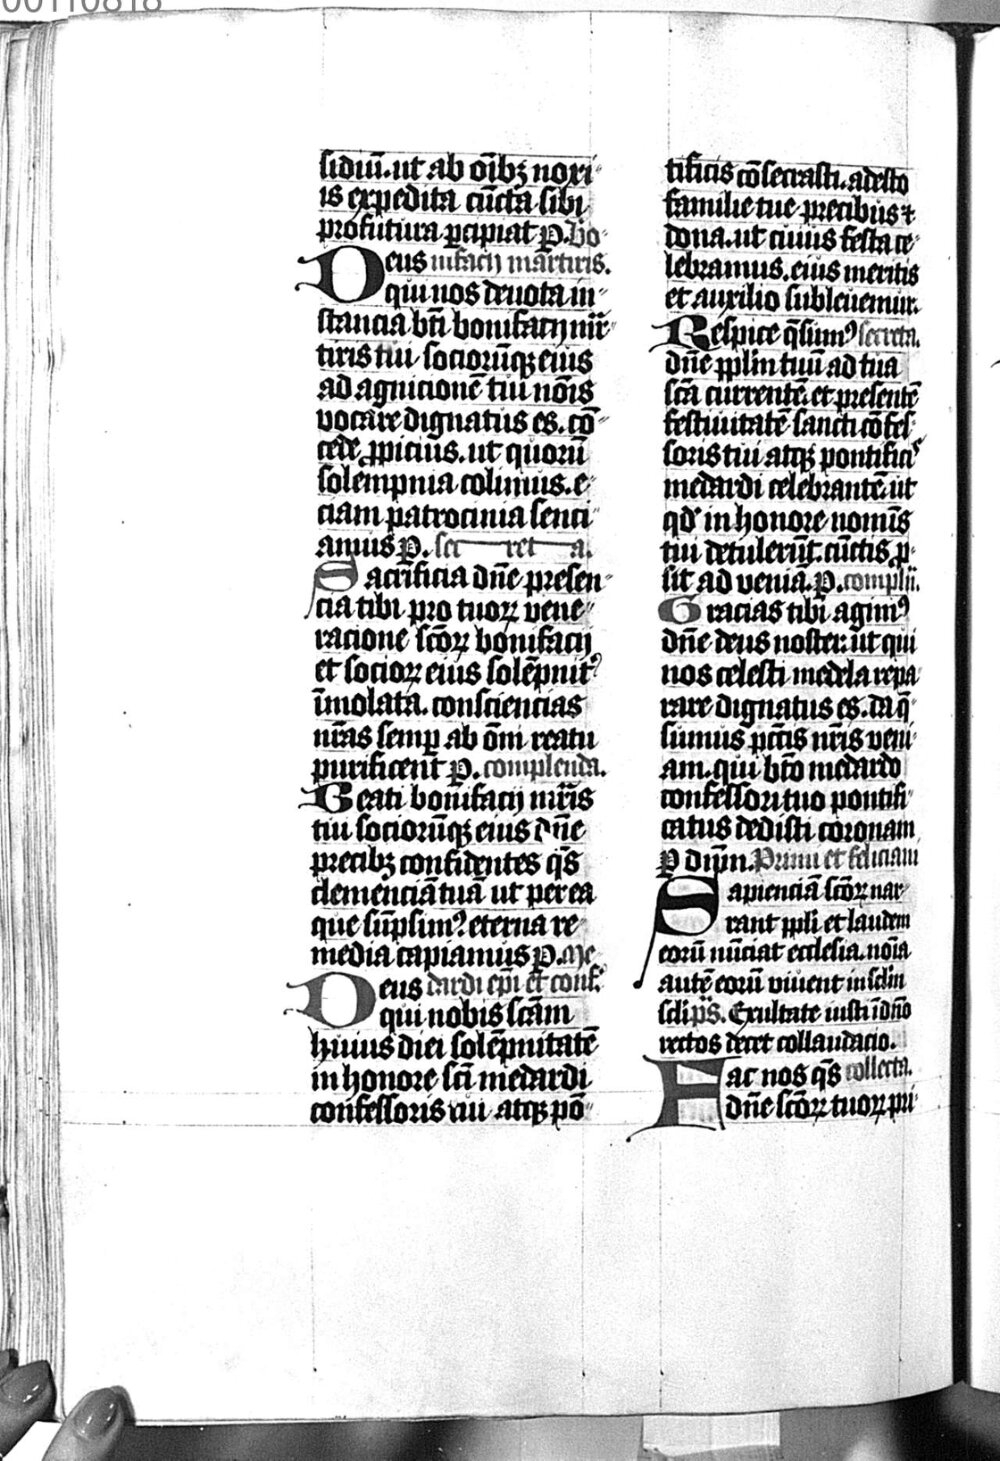 sidiū. ut ab oībꝫ noxi-
is expedita cūcta sibi
profutura ꝑcipiat P. Bo-
Deus nifacij martiris.
qui nos deuota in-
stancia bt̄i bonifacij mr̄-
tiris tui sociorūqꝫ eius
ad agnicionē tui nōīs
vocare dignatus es. cō-
cede ꝓpicius. ut quorū
solempnia colimus. e-
ciam patrocinia senci-
amus P. secreta.
Sacrificia dn̄e presen-
cia tibi pro tuoꝝ vene-
racione scōꝝ bonifacij
et socioꝝ eius solēpnit᷒
īmolata. consciencias
nr̄as semꝑ ab om̄i reatu
purificent P. complenda.
Beati bonifacij mr̄is
tui sociorūqꝫ eius dn̄e
precibꝫ confidentes qs̄
clemenciā tuā ut per ea
que sūpsimꝰ eterna re-
media capiamus P. Me-
Deus dardi ep̄i et conf.
qui nobis scām
huius diei solēpnitatē
in honore scī medardi
confessoris tui atqꝫ pō-
tificis cōsecrasti. adesto
familie tue precibus ⁊
dona. ut cuius festa ce-
lebramus. eius meritis
et auxilio subleuemur.
Respice q̄sumꝰ secreta.
dn̄e ꝓplm̄ tuū ad tua
scā currentē. et presentē
festiuitatē sancti cōfes-
soris tui atqꝫ pontific᷒
medardi celebrantē. ut
qd' in honore nominis
tui detulerūt. cūctis ꝓ-
sit ad veniā. P. compln̄.
Gracias tibi agimꝰ
dn̄e deus noster. ut qui
nos celesti medela repa-
rare dignatus es. da q̄-
sumus pctīs nr̄is veni-
am. qui bt̄o medardo
confessori tuo pontifi-
catus dedisti coronam
P dn̄m. Primi et feliciani
Sapienciā scōꝝ nar-
rant ppli et laudem
eorū nūciat ecclesia. noīa
autē eorū viuent in sclm̄
scli p̄s. Exultate iusti ī dn̄o
rectos decet collaudacio.
Fac nos qs̄ collecta.
dn̄e scōꝝ tuoꝝ pri-